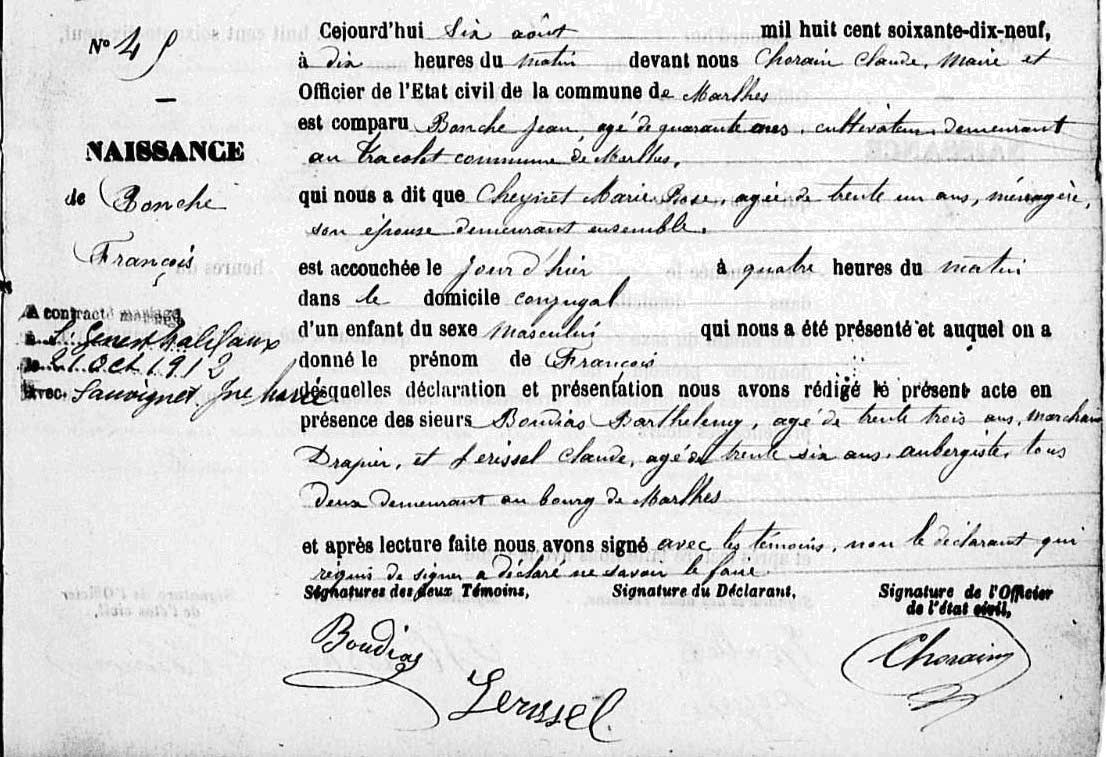 N° 49
NAISSANCE
de Bonche
François
A contracté mariage
à St Genest Malifaux
le 21 OCT 1912
avec Sauvignet Jne Marie
Cejourd'hui six août mil huit cent soixante-dix-neuf,
à dix heures du matin devant nous Chorain Claude, Maire et
Officier de l'Etat civil de la commune de Marlhes
est comparu Bonche Jean, agé de quarante ans, cultivateur, demeurant
au Tracolet commune de Marlhes,
qui nous a dit que Cheynet Marie Rose, agée de trente un ans, ménagère,
son épouse demeurant ensemble,
est accouchée le jour d'hier à quatre heures du matin
dans le domicile conjugal
d'un enfant du sexe masculin qui nous a été présenté et auquel on a
donné le prénom de François
desquelles déclaration et présentation nous avons rédigé le présent acte en
présence des sieurs Boudias Barthelemy, agé de trente trois ans, marchand
Drapier, et Lerissel Claude, agé de trente six ans, aubergiste, tous
deux demeurant au bourg de Marlhes
et après lecture faite nous avons signé avec les témoins, non le déclarant qui
requis de signer a déclaré ne savoir le faire.
Signatures des deux Témoins, Signature du Déclarant, Signature de l'Officier
de l'état civil,
Boudias
Lerissel
Chorain